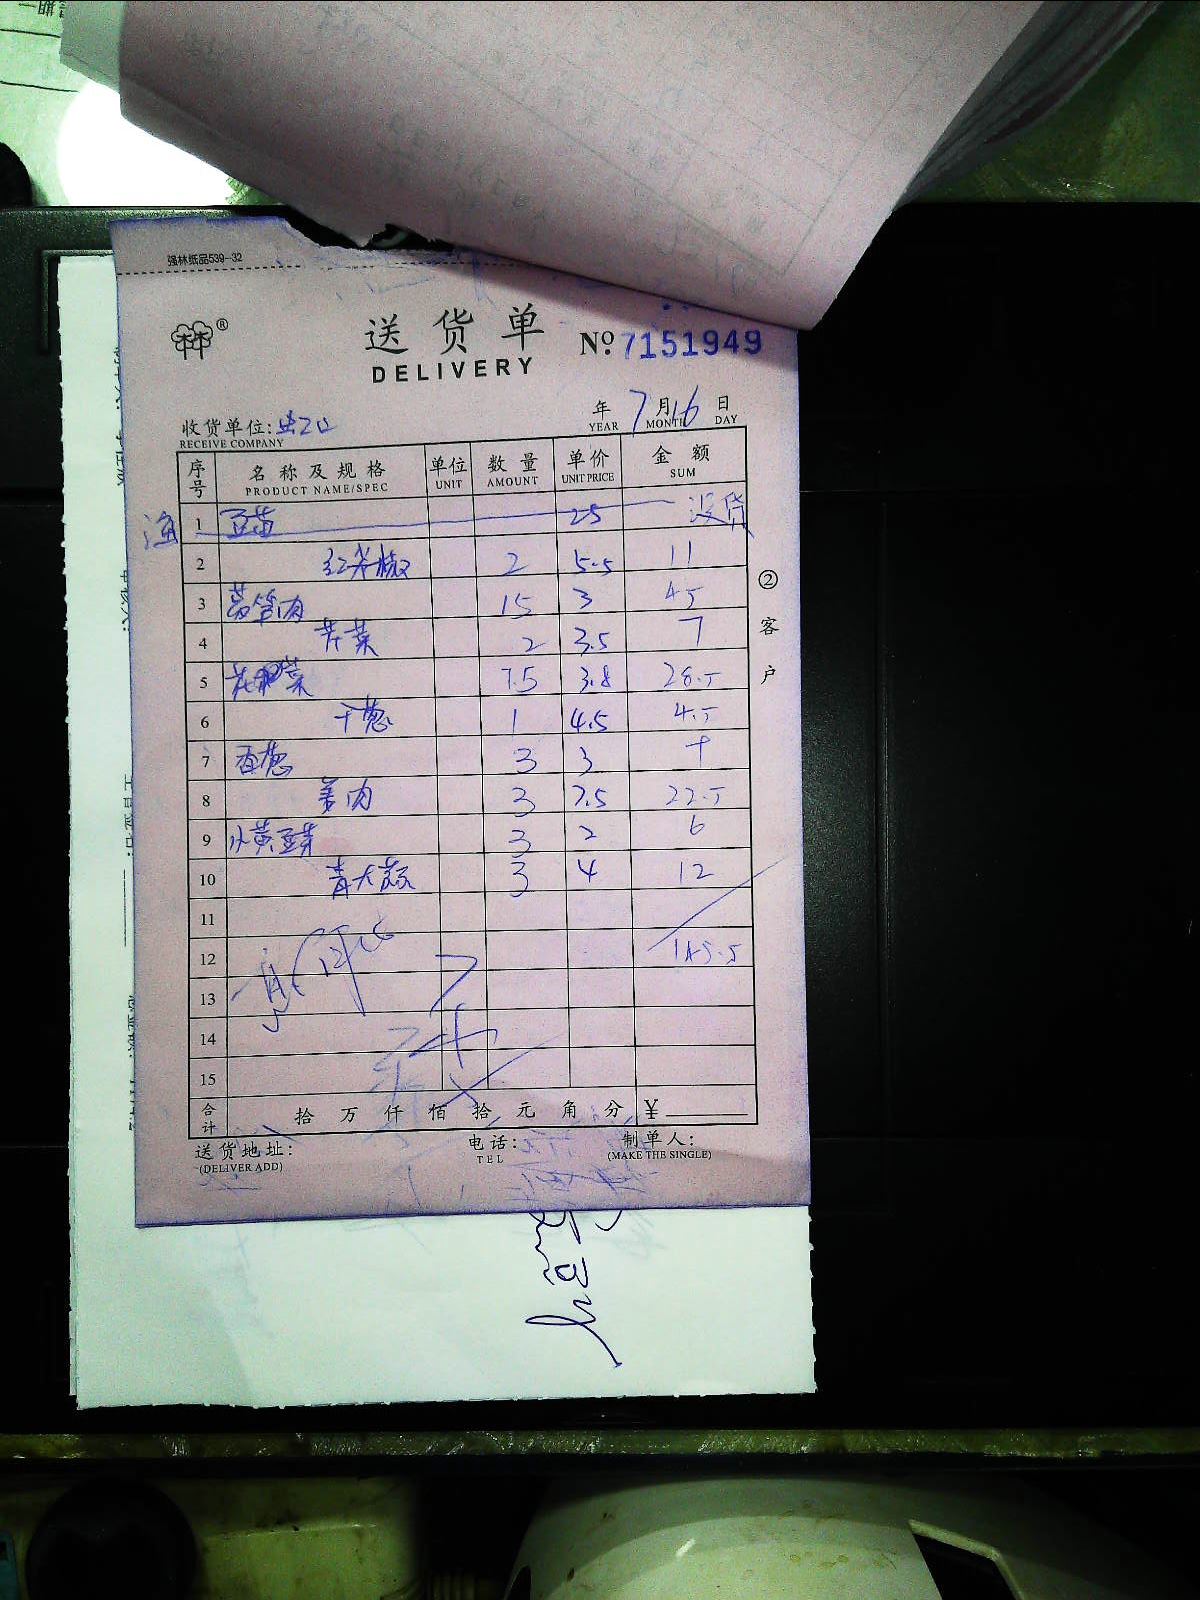 强林纸品539-32
送货单
DELIVERY
Nº 7151949
年 7 月 16 日
YEAR MONTH DAY
收货单位:
RECEIVE COMPANY
序号 名称及规格 单位 数量 单价 金额
PRODUCT NAME/SPEC UNIT AMOUNT UNIT PRICE SUM
1 豆苗 25 没货
2 红尖椒 2 5.5 11
3 15 3 45
4 芹菜 2 3.5 7
5 花 菜 7.5 3.8 28.5
6 干葱 1 4.5 4.5
7 香葱 3 3
8 姜肉 3 7.5 22.5
9 小黄豆芽 3 2 6
10 3 4 12
11
12 145.5
13
14
15
合计 拾 万 仟 佰 拾 元 角 分 ¥
送货地址: 电话: 制单人:
(DELIVER ADD) TEL (MAKE THE SINGLE)
②客户